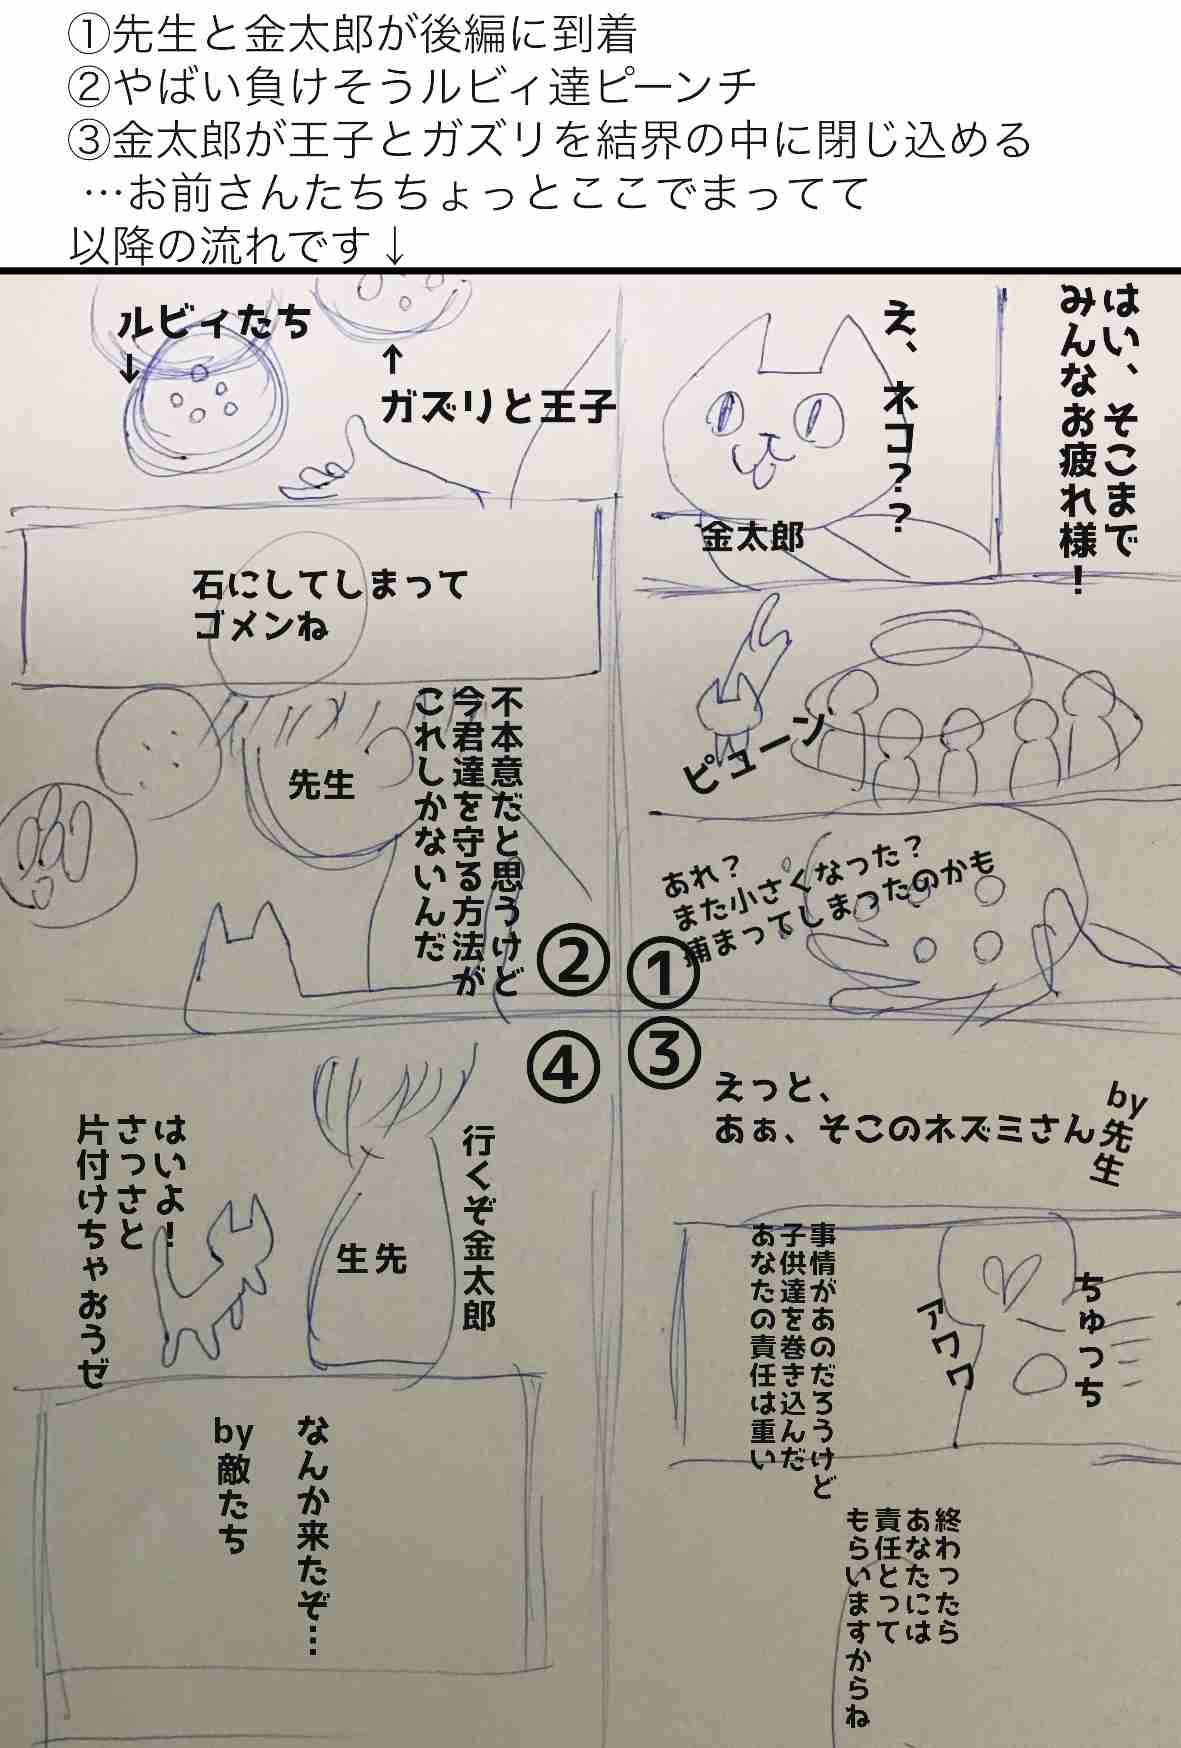 ①先生と金太郎が後編に到着
②やばい負けそうルビィ達ピーンチ
③金太郎が王子とガズリを結界の中に閉じ込める
…お前さんたちちょっとここでまってて
以降の流れです↓
はい、そこまで
みんなお疲れ様！
え、ネコ？？
金太郎
ピューン
あれ？
また小さくなった？
捕まってしまったのかも
①
ルビィたち
↓
↑
ガズリと王子
石にしてしまって
ゴメンね
不本意だと思うけど
今君達を守る方法が
これしかないんだ
先生
②
③
えっと、
あぁ、そこのネズミさん
by先生
ちゅっち
アワワ
事情があのだろうけど
子供達を巻き込んだ
あなたの責任は重い
終わったら
あなたには
責任とって
もらいますからね
④
行くぞ金太郎
生先
はいよ！
さっさと
片付けちゃおうぜ
なんか来たぞ…
by敵たち